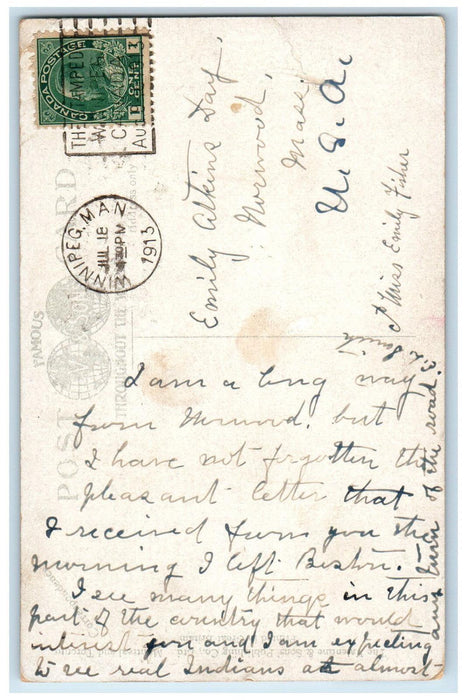 CANADA POSTAGE
1 ONE CENT 1
THE
WINNIPEG, MAN.
JUL 18
30 PM
1913
POST CARD
Address only
FAMOUS
THROUGHOUT THE
Emily Atkins Day,
Norwood,
Mass.
U. S. A.
Miss Emily Fisher
I am a long way
from Norwood, but
I have not forgotten the
pleasant letter that
I received from you the
morning I left Boston.
I see many things in this
part of the country that would
interest you and I am expecting
to see real Indians at almost
any turn of the road.